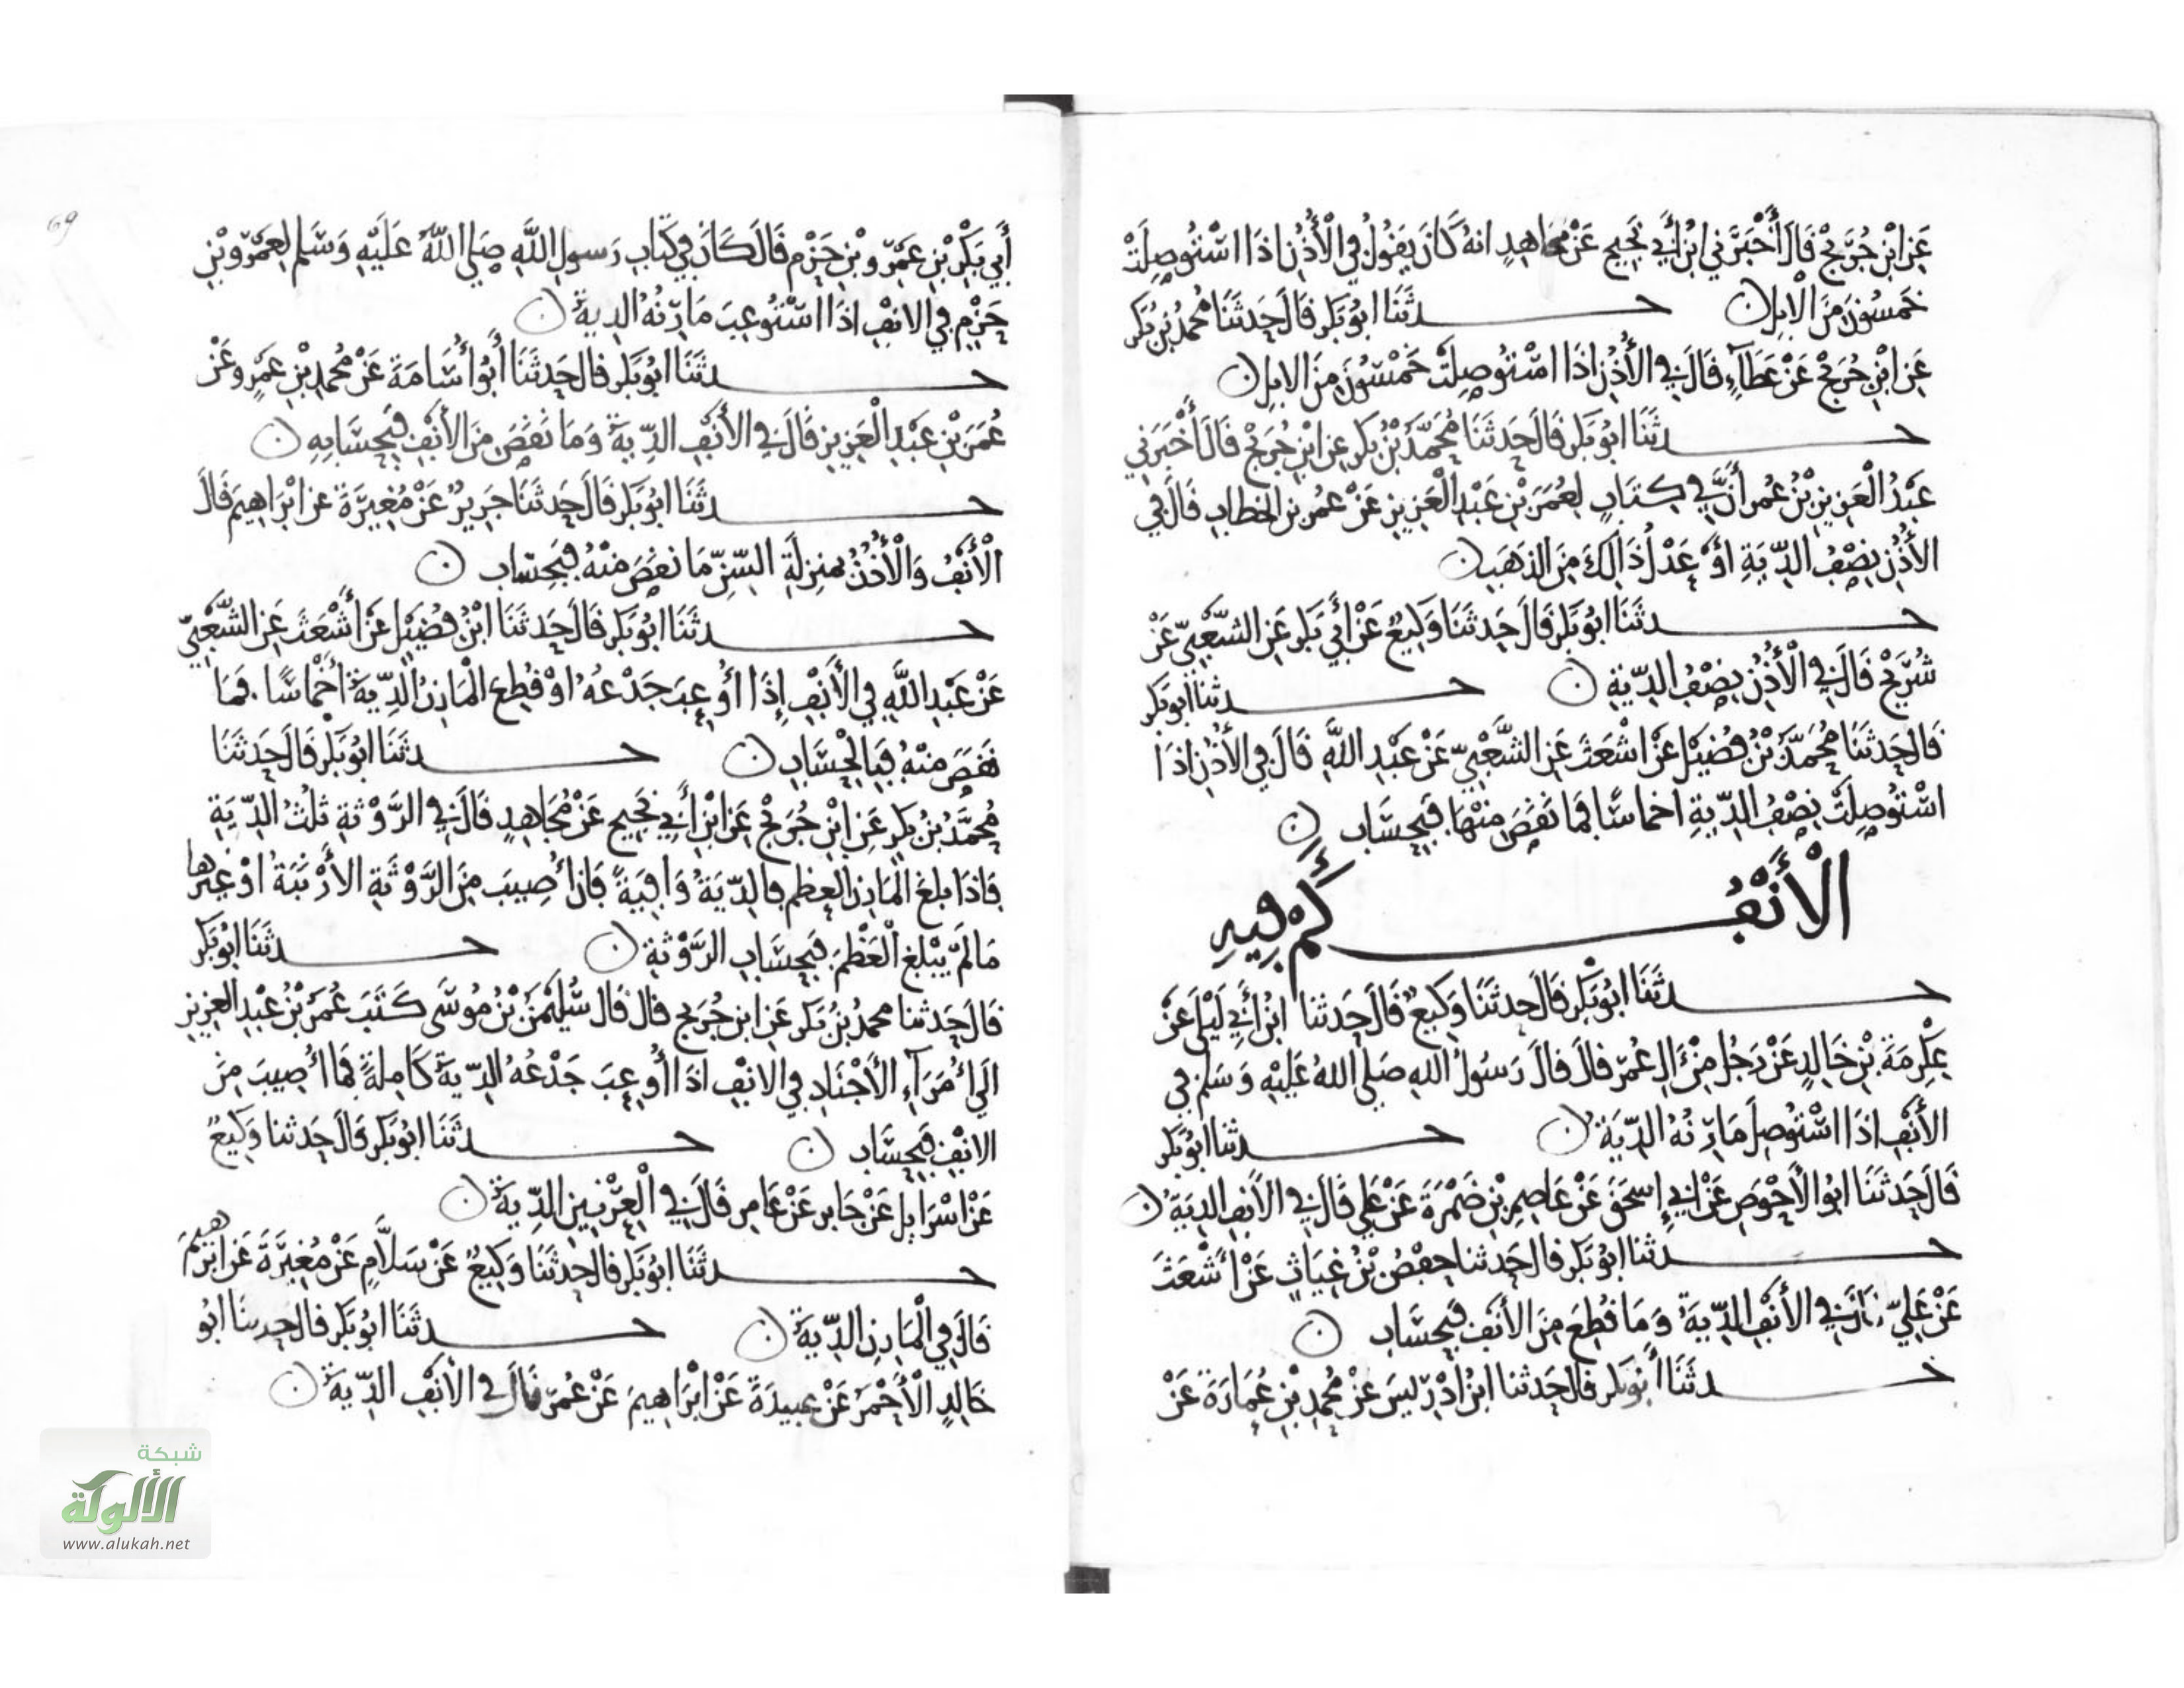 عَنِ ابْنِ جُرَيْجٍ قَالَ أَخْبَرَنِي ابْنُ أَبِي نَجِيحٍ عَنْ مجاهِدٍ انهُ كَانَ يَقُولُ فِي الْأُذُنِ اذَا اسْتُوصِلَتْ
خَمْسُونَ مِنَ الْابِلِ ن حدثَنَا ابُو بَكر قَالَ حَدثَنَا مُحمدُ بْنُ بَكر
عَنِ ابْنِ جُرَيْجٍ عَنْ عَطَآءٍ قَالَ فِي الْأُذُنِ اذَا اسْتُوصِلَتْ خَمْسُونَ مِنَ الابِلِ ن
حدثَنَا ابُو بَكر قَالَ حَدثَنَا مُحَمَّدُ بْنُ بَكر عن ابْنِ جُرَيْج قَالَ أَخْبَرَنِي
عَبْدُ الْعَزِيزِ بْنُ عُمر أَنَّ فِي كِتَابٍ لِعُمَرَ بْنِ عَبْدِ الْعَزِيزِ عَنْ عُمر بن الخطابِ قَالَ فِي
الأُذُنِ نِصْفُ الدِّيَةِ اوْ عَدْلُ ذَالِكَ مِنَ الذهَبِ ن
حدثَنَا ابُو بَكر قَالَ حَدثَنَا وَكِيعٌ عَنْ أَبِي بَكر عَنِ الشَّعْبِيِّ عَنْ
شُرَيْحٍ قَالَ فِي الْأُذُنِ نِصْفُ الدِّيَةِ ن حدثنَا ابُو بَكر
قَالَ حَدثَنَا مُحَمَّدُ بْنُ فُضَيْلٍ عَنْ اشْعَثَ عَنِ الشَّعْبِيِّ عَنْ عَبْدِ اللَّهِ قَالَ فِي الأُذُنِ اذَا
اسْتُوصِلَتْ نِصْفُ الدِّيَةِ اخماسًا فَمَا نَقَصَ مِنْهَا فَبِحِسَابٍ ن
الْأَنْفُ كَمْ فِيهِ
حدثَنَا ابُو بَكر قَالَ حدثَنَا وَكِيعٌ قَالَ حَدثنا ابْنُ أَبِي لَيْلَى عَنْ
عِكْرِمَةَ بْنِ خَالِدٍ عَنْ رَجُلٍ مِنْ آلِ عُمَرَ قَالَ قَالَ رَسُولُ اللهِ صَلي اللهُ عَلَيْهِ وَسَلم فِي
الأَنْفِ اذَا اسْتُوصِلَ مَارِنُهُ الدِّيَةُ ن حدثنا ابُو بَكر
قَالَ حَدثَنَا ابُو الأَحْوَصِ عَنْ ابِي إِسحَقَ عَنْ عَاصِمِ بْنِ ضَمْرَةَ عَنْ عَلِي قَالَ فِي الأَنفِ الدِيَةُ ن
حدثنا ابُو بَكر قَالَ حَدثنا حَفْصُ بْنُ غِيَاثٍ عَنْ أَشْعَثَ
عَنْ عَلِيٍّ قَالَ فِي الأَنْفِ الدِّيَةُ وَمَا قُطِعَ مِنَ الأَنْفِ فَبِحِسَابٍ ن
حدثَنَا أَبُو بَكر قَالَ حَدثنا ابْنُ ادْرِيسَ عَنْ مُحمدِ بْنِ عُمَارَةَ عَنْ
أَبِي بَكْرِ بْنِ عَمْرِو بْنِ حَزْمٍ قَالَ كَانَ فِي كِتَابِ رَسولِ اللَّهِ صَلي اللهُ عَلَيْهِ وَسَلم لِعَمْرِو بْنِ
حَزْمٍ فِي الانْفِ اذَا اسْتُوعِبَ مَارِنُهُ الدِيَةُ ن
حدثَنَا ابُو بَكر قال حَدثَنَا أَبُو أُسَامَةَ عَنْ مُحمدِ بْنِ عَمْرٍو عَنْ
عُمَرَ بْنِ عَبْدِ الْعَزِيزِ قَالَ فِي الأَنْفِ الدِّيَةُ وَمَا نَقَصَ مِنَ الأَنْفِ فَبِحِسَابِهِ ن
حدثَنَا ابُو بَكر قَالَ حَدثَنَا جَرِيرٌ عَنْ مُغِيرَةَ عن ابْرَاهِيمَ قَالَ
الْأَنْفُ وَالْأُذُنُ بمنزِلَةِ السِّنِّ مَا نَقَصَ مِنْهُ فَبِحِسَابٍ ن
حدثَنَا ابُو بَكر قَالَ حَدثَنَا ابْنُ فُضَيْلٍ عَنْ أَشْعَثَ عَنِ الشَّعْبِيِّ
عَنْ عَبْدِ اللَّهِ فِي الأَنْفِ إِذَا أُوعِبَ جَدْعُهُ اوْ قُطِعَ الْمَارِنُ الدِّيَةُ أَخْمَاسًا فمَا
نَقَصَ مِنْهُ فَبِالْحِسَابِ ن حدثَنَا ابُو بَكْر قَالَ حَدثَنَا
مُحَمَّدُ بْنُ بَكرٍ عَنِ ابْنِ جُرَيْجٍ عَنِ ابْنِ أَبِي نَجِيحٍ عَنْ مُجَاهِدٍ قَالَ فِي الرَّوْثَةِ ثلُثُ الدِّيَةِ
فَاذَا بلغَ المَارِنَ العظم فالدِّيَةُ وَافِيَةً فَانْ أُصِيبَ مِنَ الرَّوْثَةِ الأَرْنَبَةُ اوْ غيرها
مَا لَمْ يَبْلغِ الْعَظْمَ فَبِحِسَابِ الرَّوْثَةِ ن حدثَنَا ابُو بَكر
قَالَ حَدثنا محمدُ بْنُ بَكر عَنِ ابن جُرَيج قال قَال سُلَيْمَنُ بْنُ مُوسَى كَتَبَ عُمَرُ بْنُ عَبْدِ العزيزِ
الَى أُمَرَآءِ الأَجْنَادِ فِي الانْفِ اذَا أُوعِبَ جَدْعُهُ الدِّيَةُ كَامِلَةً فَمَا أُصِيبَ مِنَ
الانْفِ فَبِحِسَابٍ ن حدثَنَا ابُو بَكر قَالَ حَدثنا وَكِيعٌ
عَنْ اسْرَايِلَ عَنْ جَابر عَنْ عَامِر قَالَ فِي الْعِرْنِينِ الدِّيَةُ ن
حدثَنَا ابُو بَكر قال حَدثَنَا وَكِيعٌ عَنْ سَلَّامٍ عَنْ مُغِيرَةَ عَن ابْرَهِيمَ
قَالَ فِي الْمَارِنِ الدِّيَةُ ن حدثَنَا ابُو بَكر قال حَدثنَا ابُو
خَالِدٍ الْأَحْمَرُ عَنْ عبيدَةَ عَنْ ابْرَاهِيمَ عَنْ عُمَرَ قَالَ فِي الْأَنْفِ الدِّيَةُ ن
69
شبكة
الألوكة
www.alukah.net